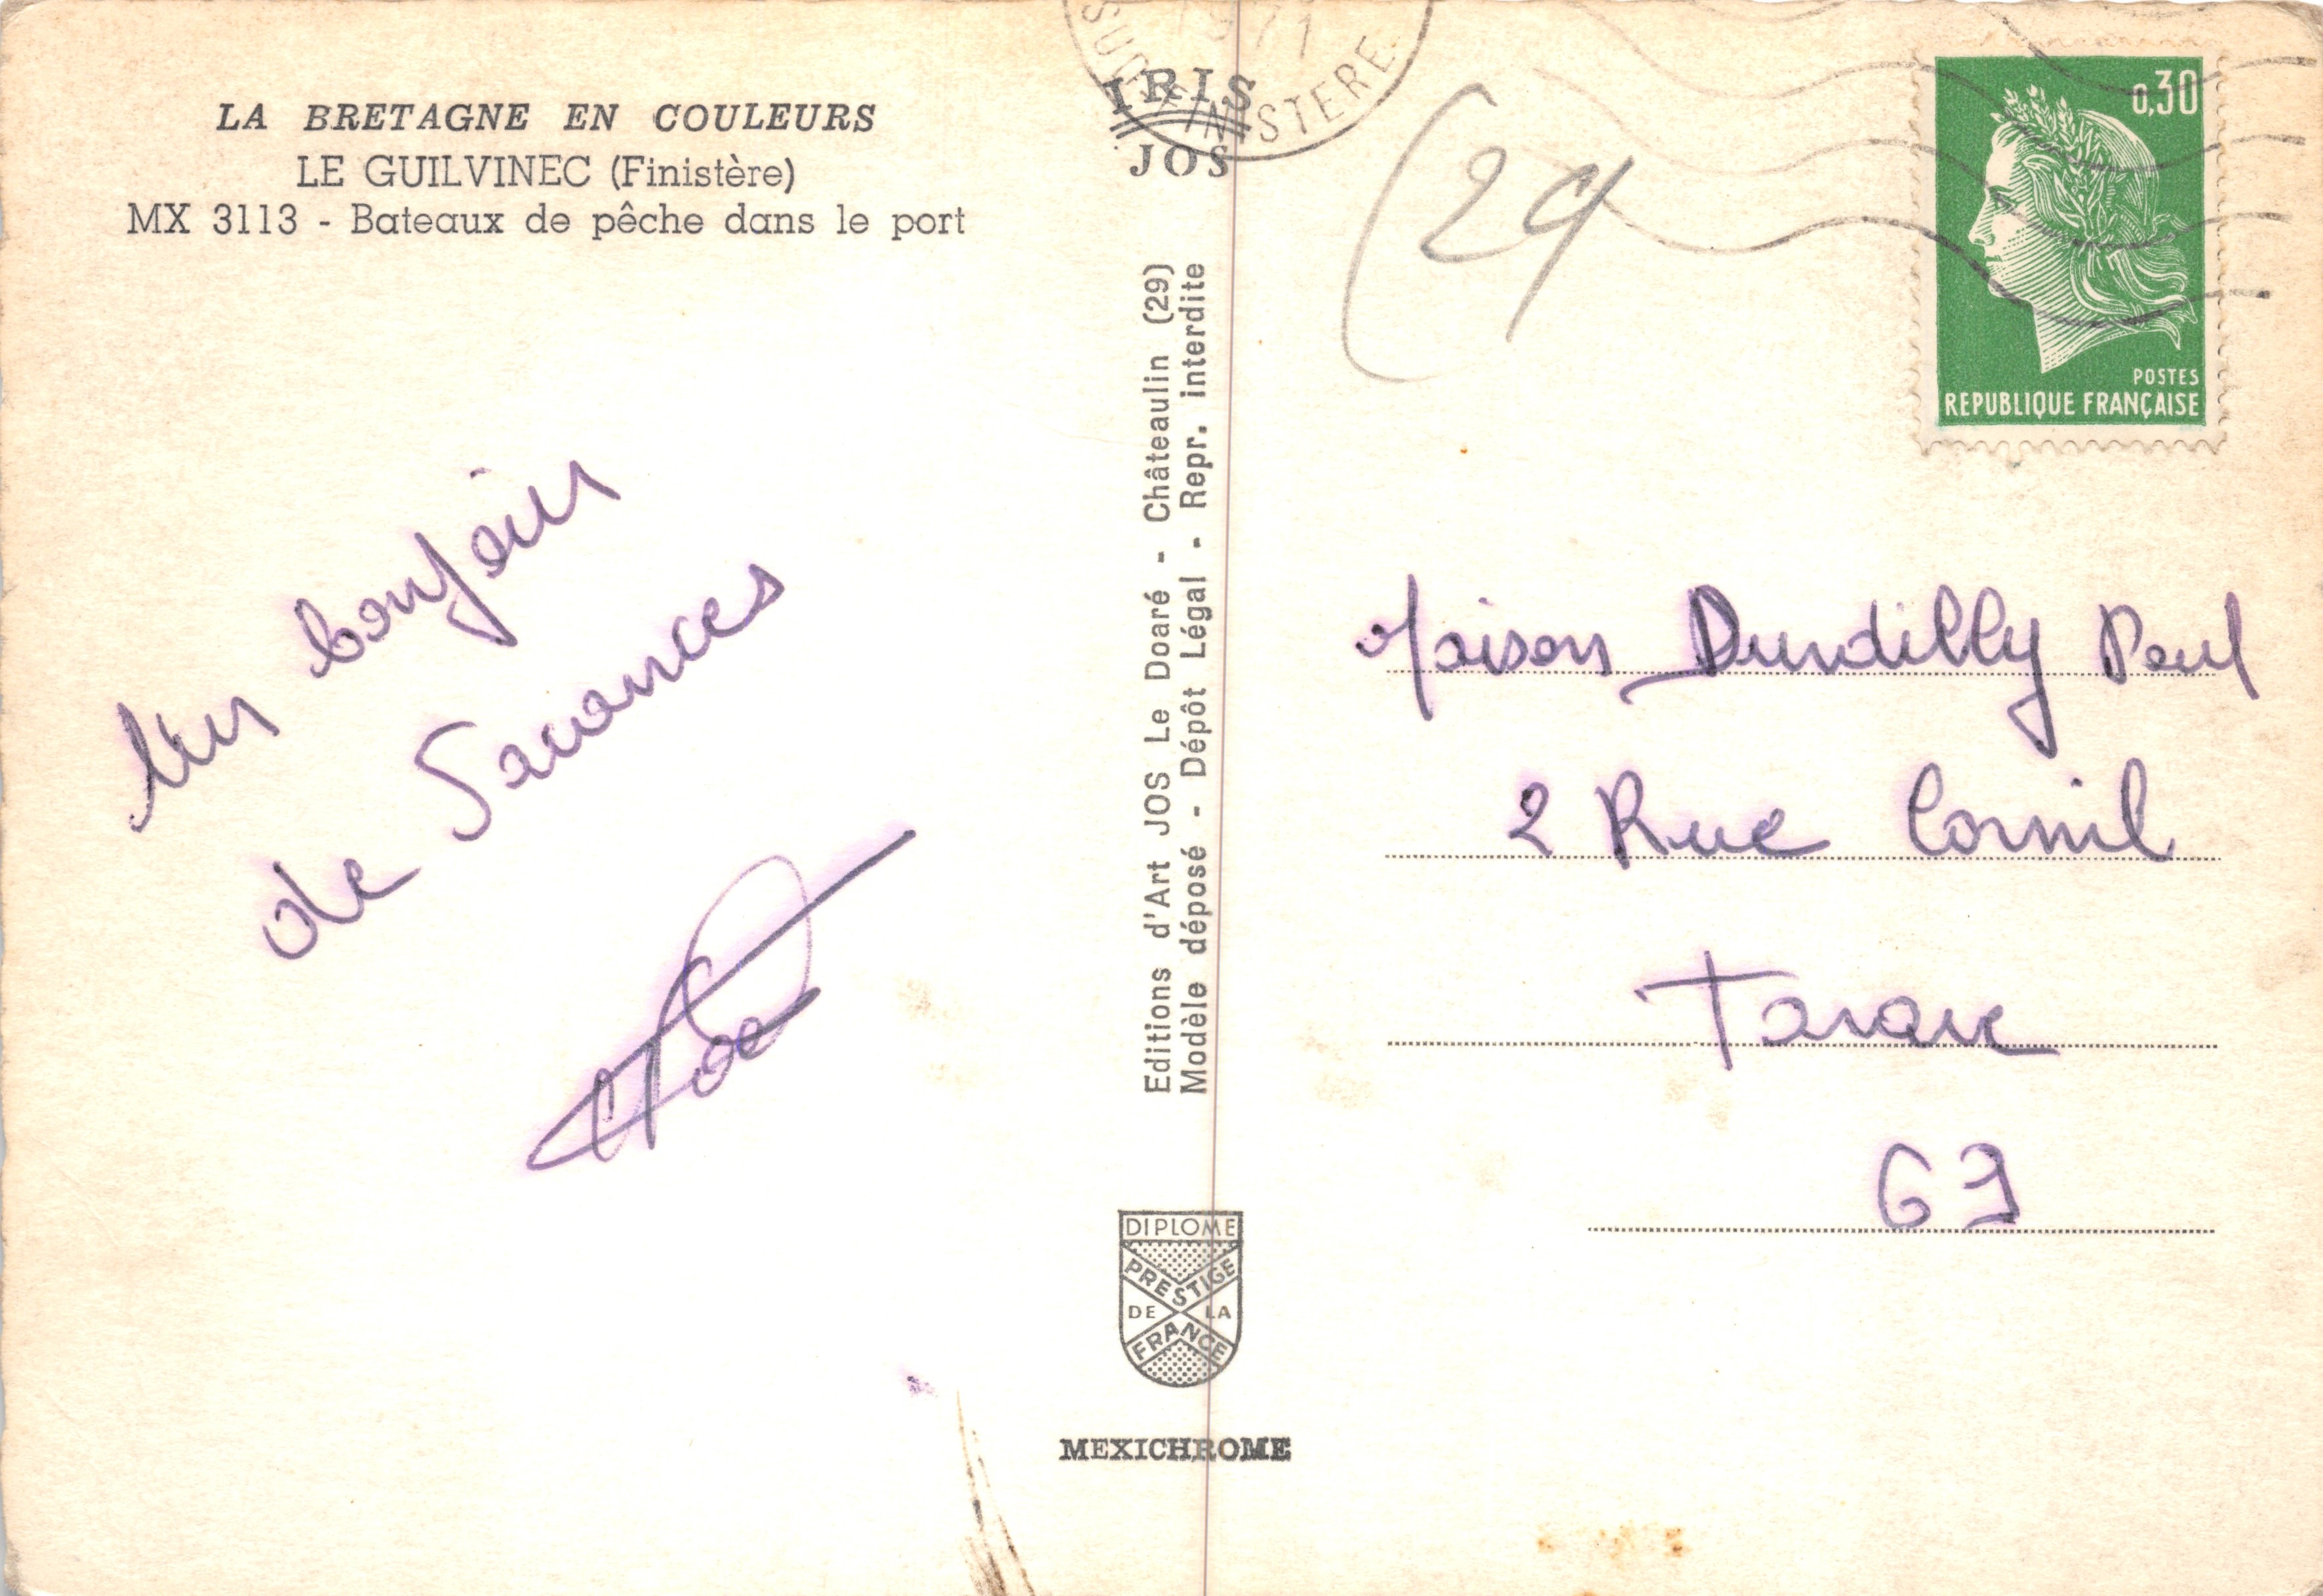 LA BRETAGNE EN COULEURS
LE GUILVINEC (Finistère)
MX 3113 - Bateaux de pêche dans le port
Un bonjour
de Vacances
IRIS
JOS
1971
SUD FINISTERE
Editions d'Art JOS Le Doaré - Châteaulin (29)
Modèle déposé - Dépôt Légal - Repr. interdite
DIPLOME
PRESTIGE
DE LA
FRANCE
MEXICHROME
(29
0,30
POSTES
REPUBLIQUE FRANÇAISE
Maison Durdilly Paul
2 Rue Cornil
Tarare
69